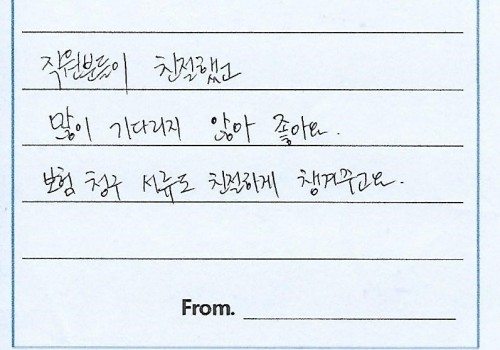 직원분들이 친절했고
많이 기다리지 않아 좋아요.
보험 청구 서류도 친절하게 챙겨주고요.
From.